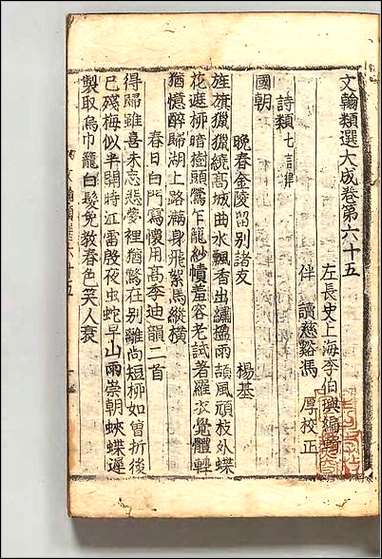 文翰類選大成卷第六十五
左長史上海李伯璵編
伴讀慈谿馮厚校正
詩類 七言律
國朝
晚春金陵留別諸友 楊基
旌旗獵獵繞高城曲水飄香出禇楹雨頡風頑枝外蝶
花遮柳暗樹頭鶯乍籠紗幘羞容老試著羅衣覺體輕
猶憶醉歸湖上路滿身飛絮馬縱橫
春日白門寫懷用高李迪韻二首
得歸雖喜未忘悲夢裡猶驚在別離尚短柳如曾折後
已殘梅似半開時江雷殷夜虫蛇早山雨崇朝蛺蝶遲
製取烏巾籠白髮免教春色笑人衰